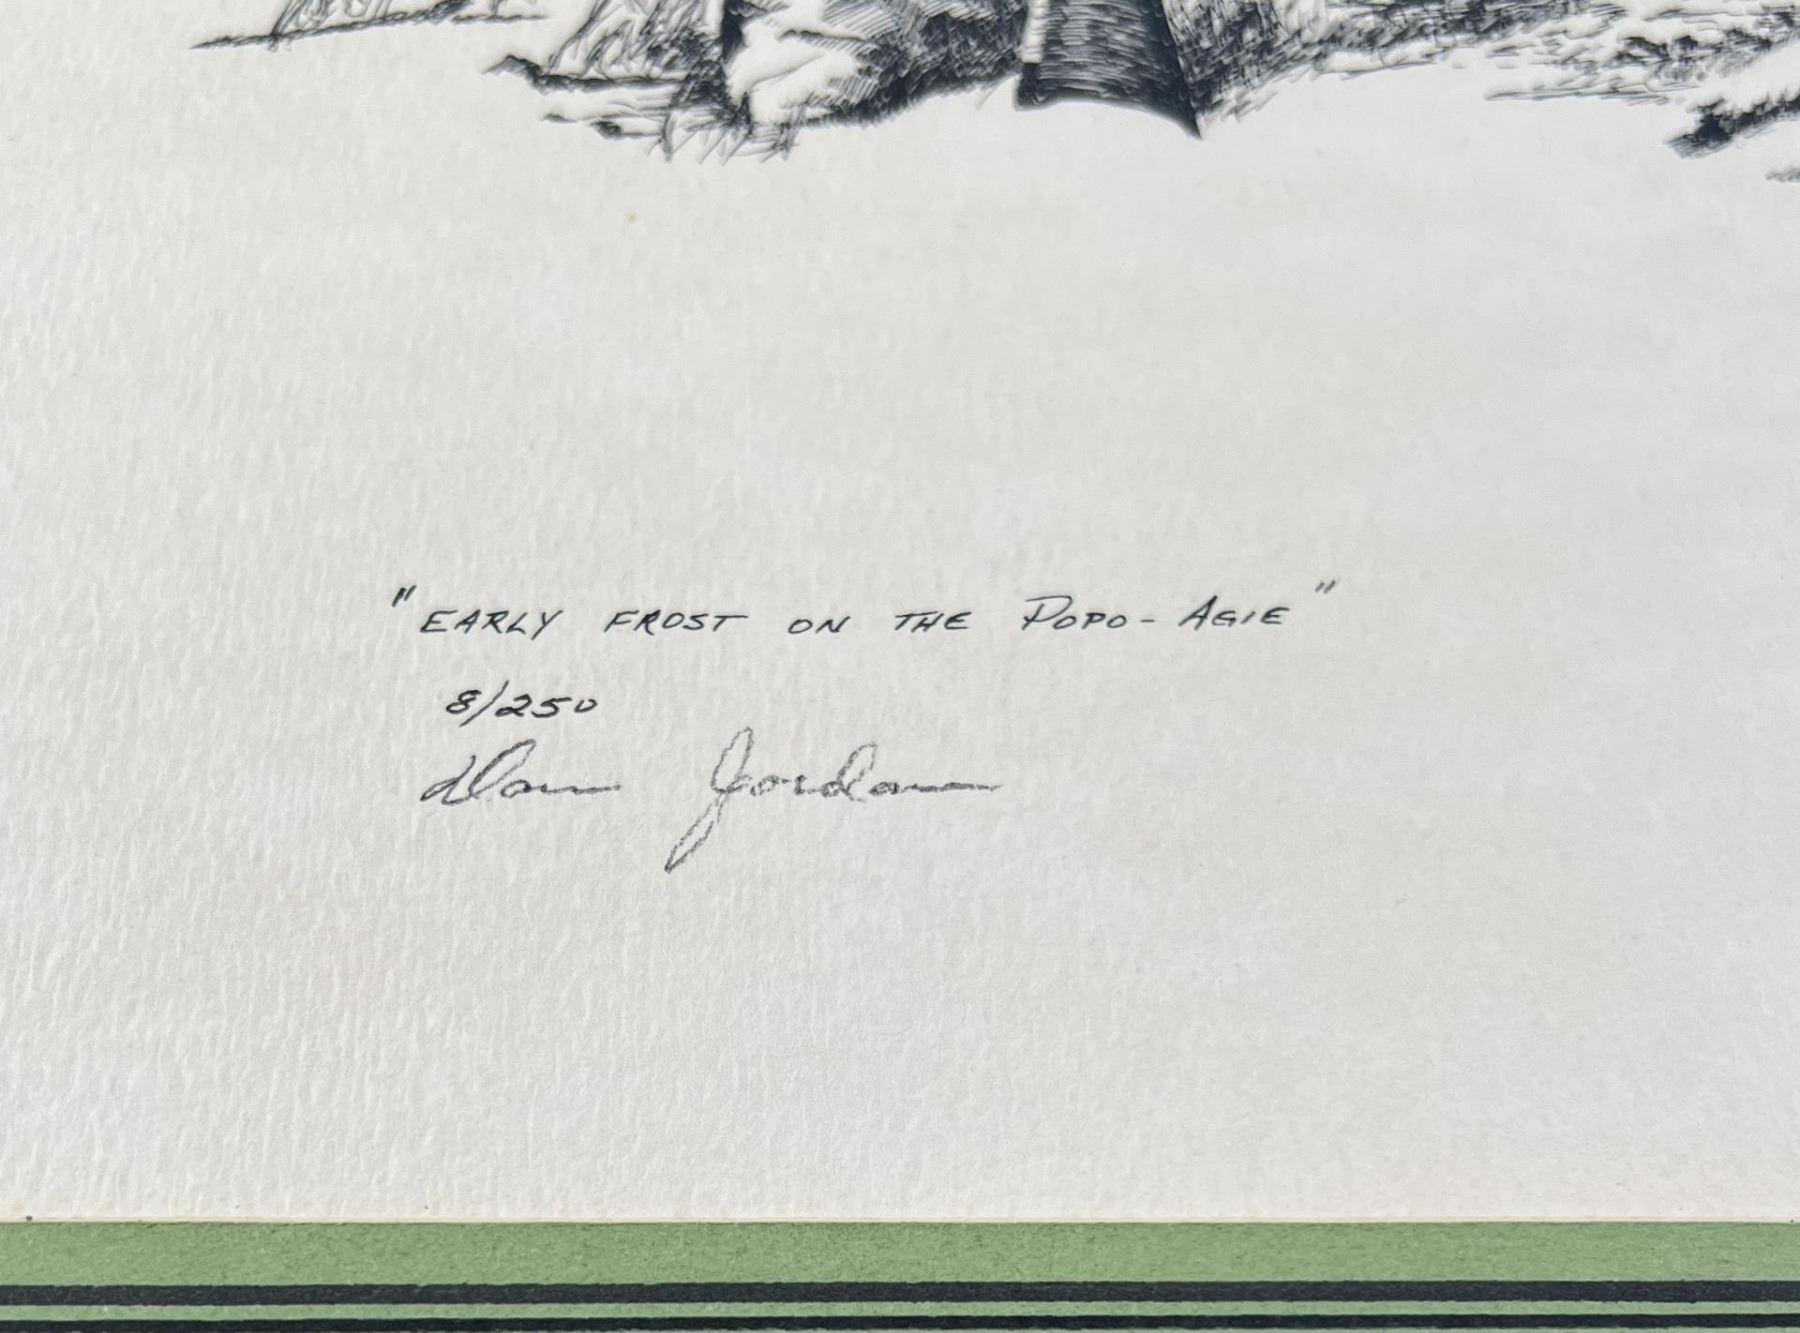 "EARLY FROST ON THE POPO-AGIE"
8/250
Dan Jordan